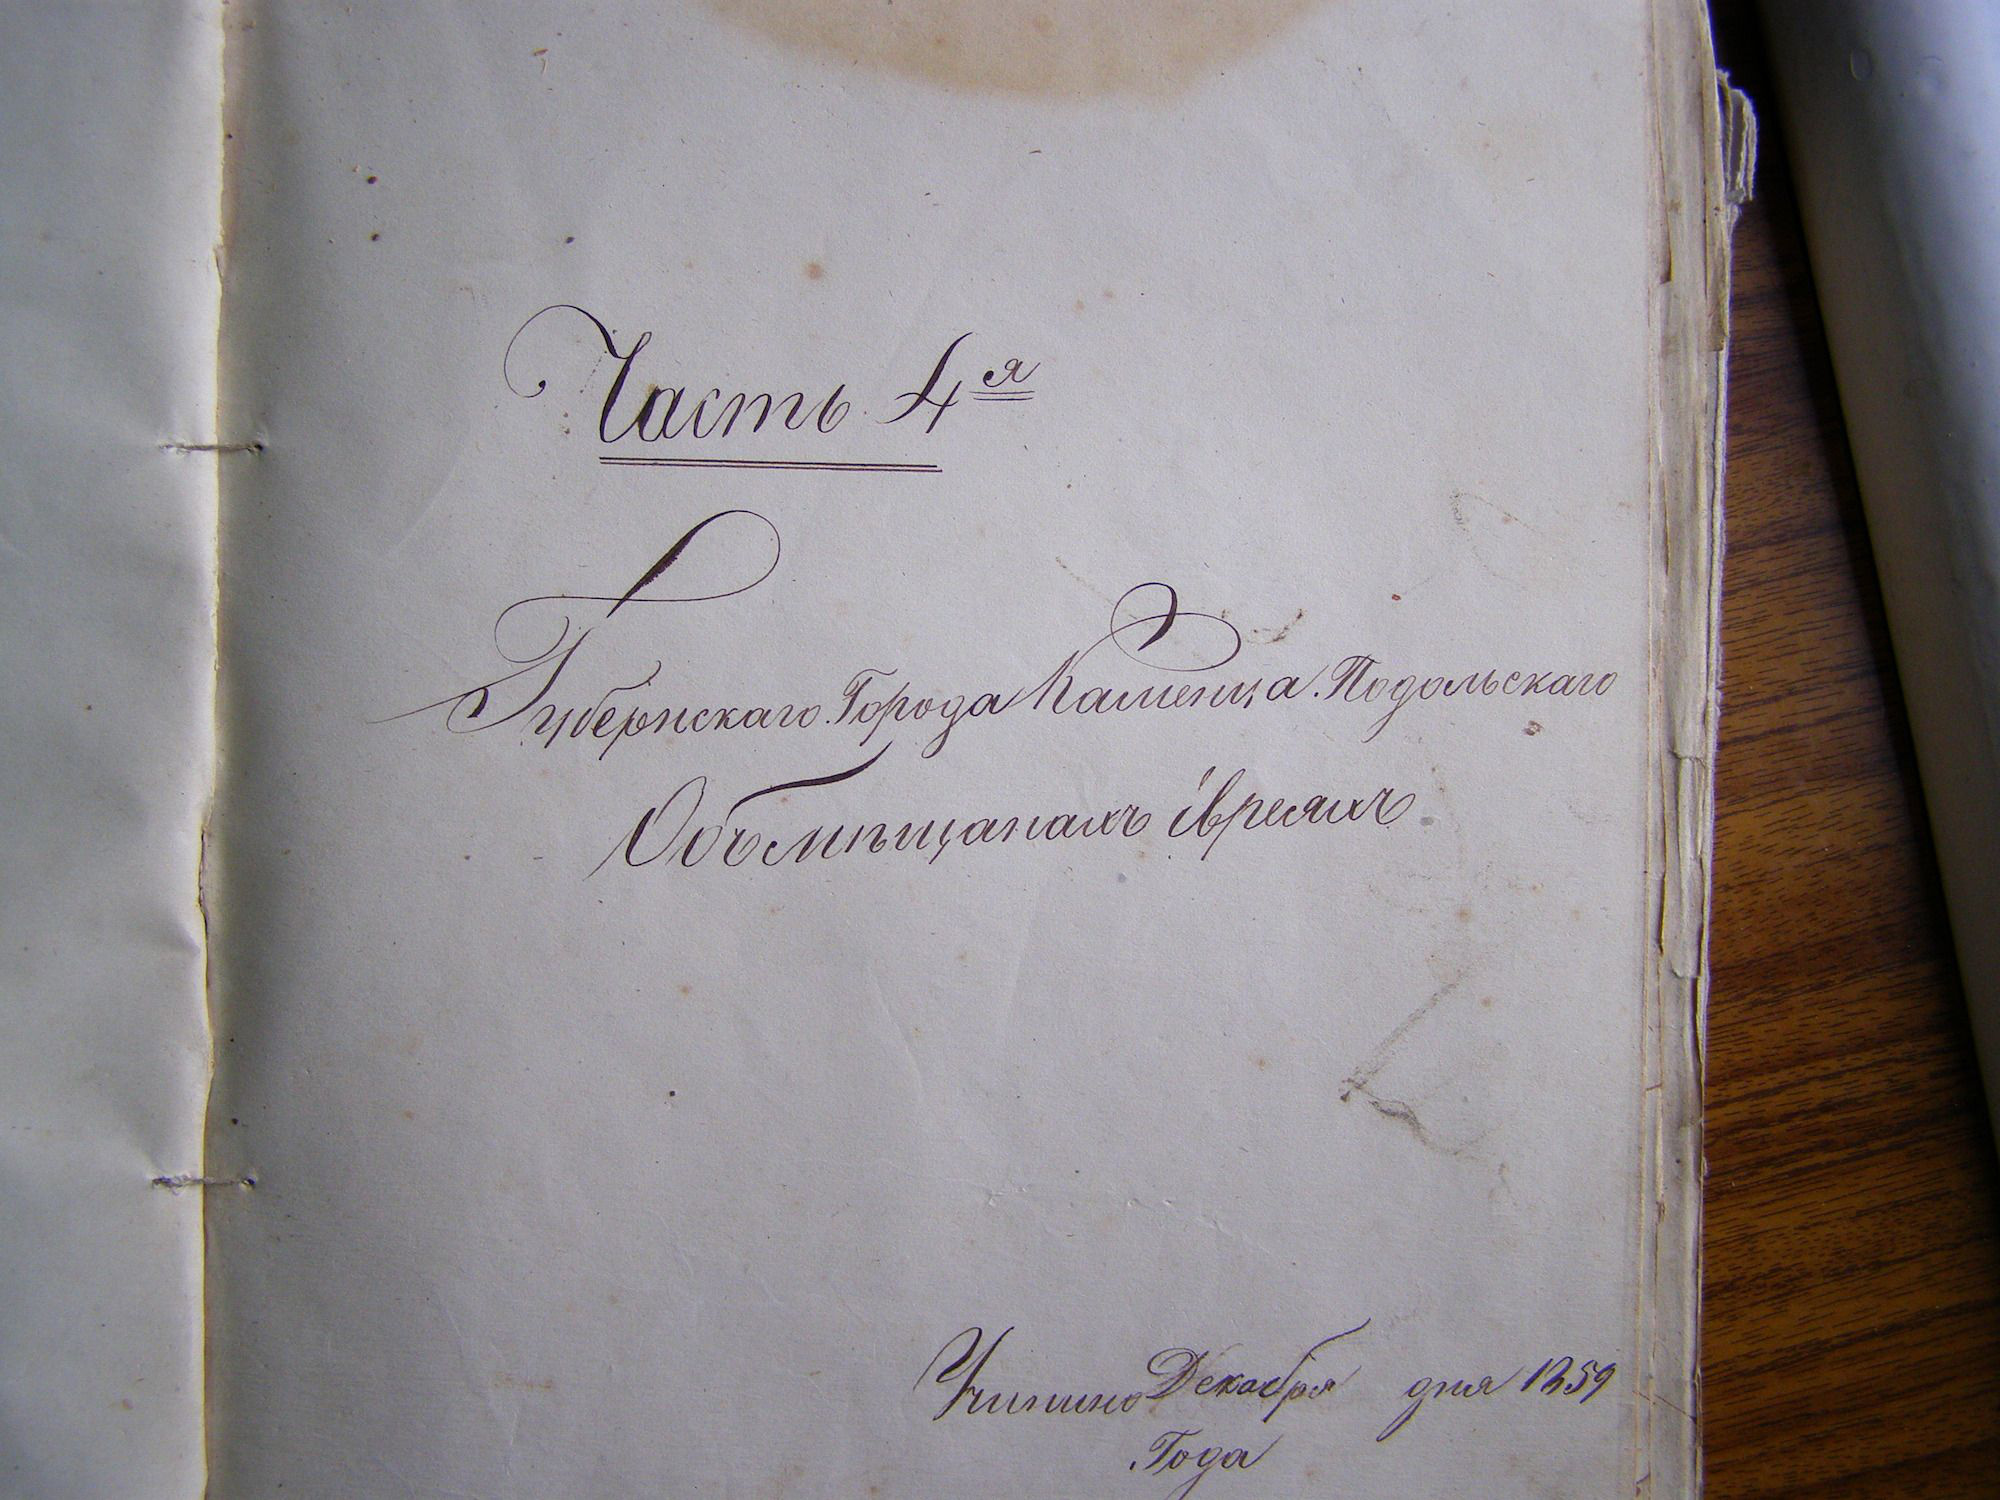 Часть 4я
Губернскаго Города Каменца Подольскаго
Объ мѣщанахъ Евреяхъ
Учинено Декабря дня 1859
Года